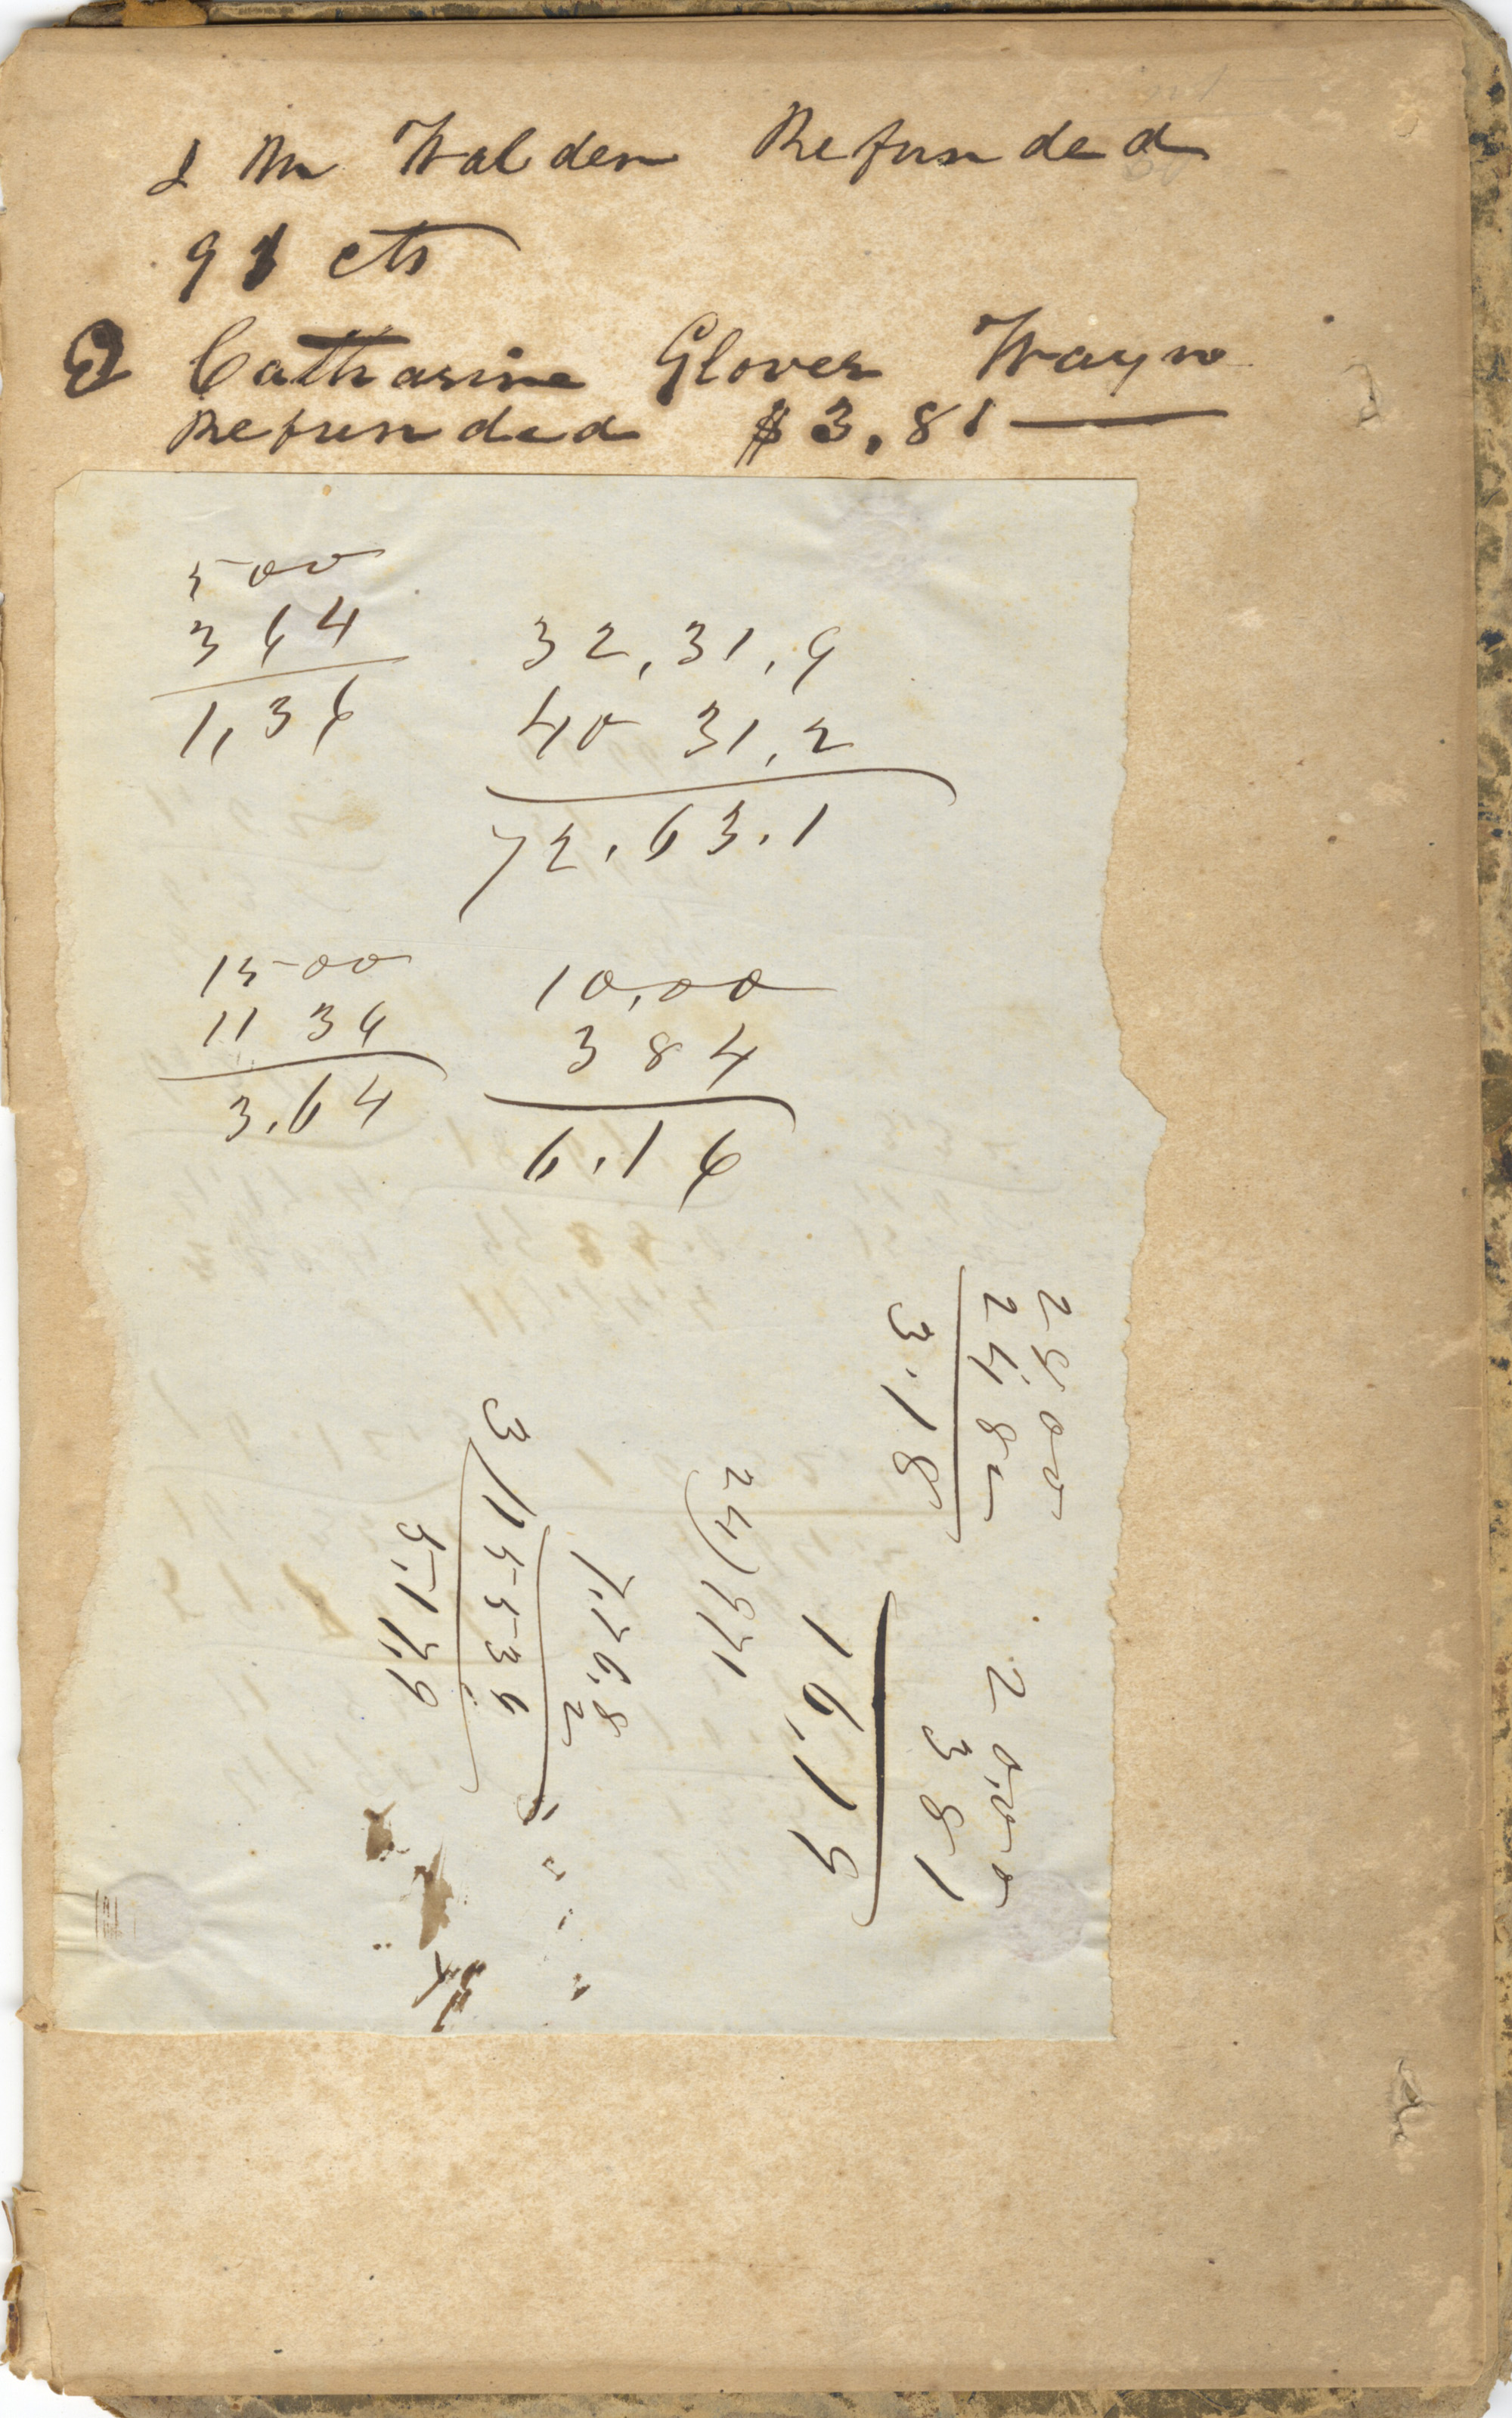 J M Walden Refunded
91 cts
Catharine Glover Wayne
Refunded $3,81
500
364
1,36
32,31,9
40 31,2
72.63.1
1500
11 36
3.64
10,00
3 84
6.16
28 00
24 82
3.18
20,00
3 81
16,19
24)971
1,768
2
3/15536
5,179